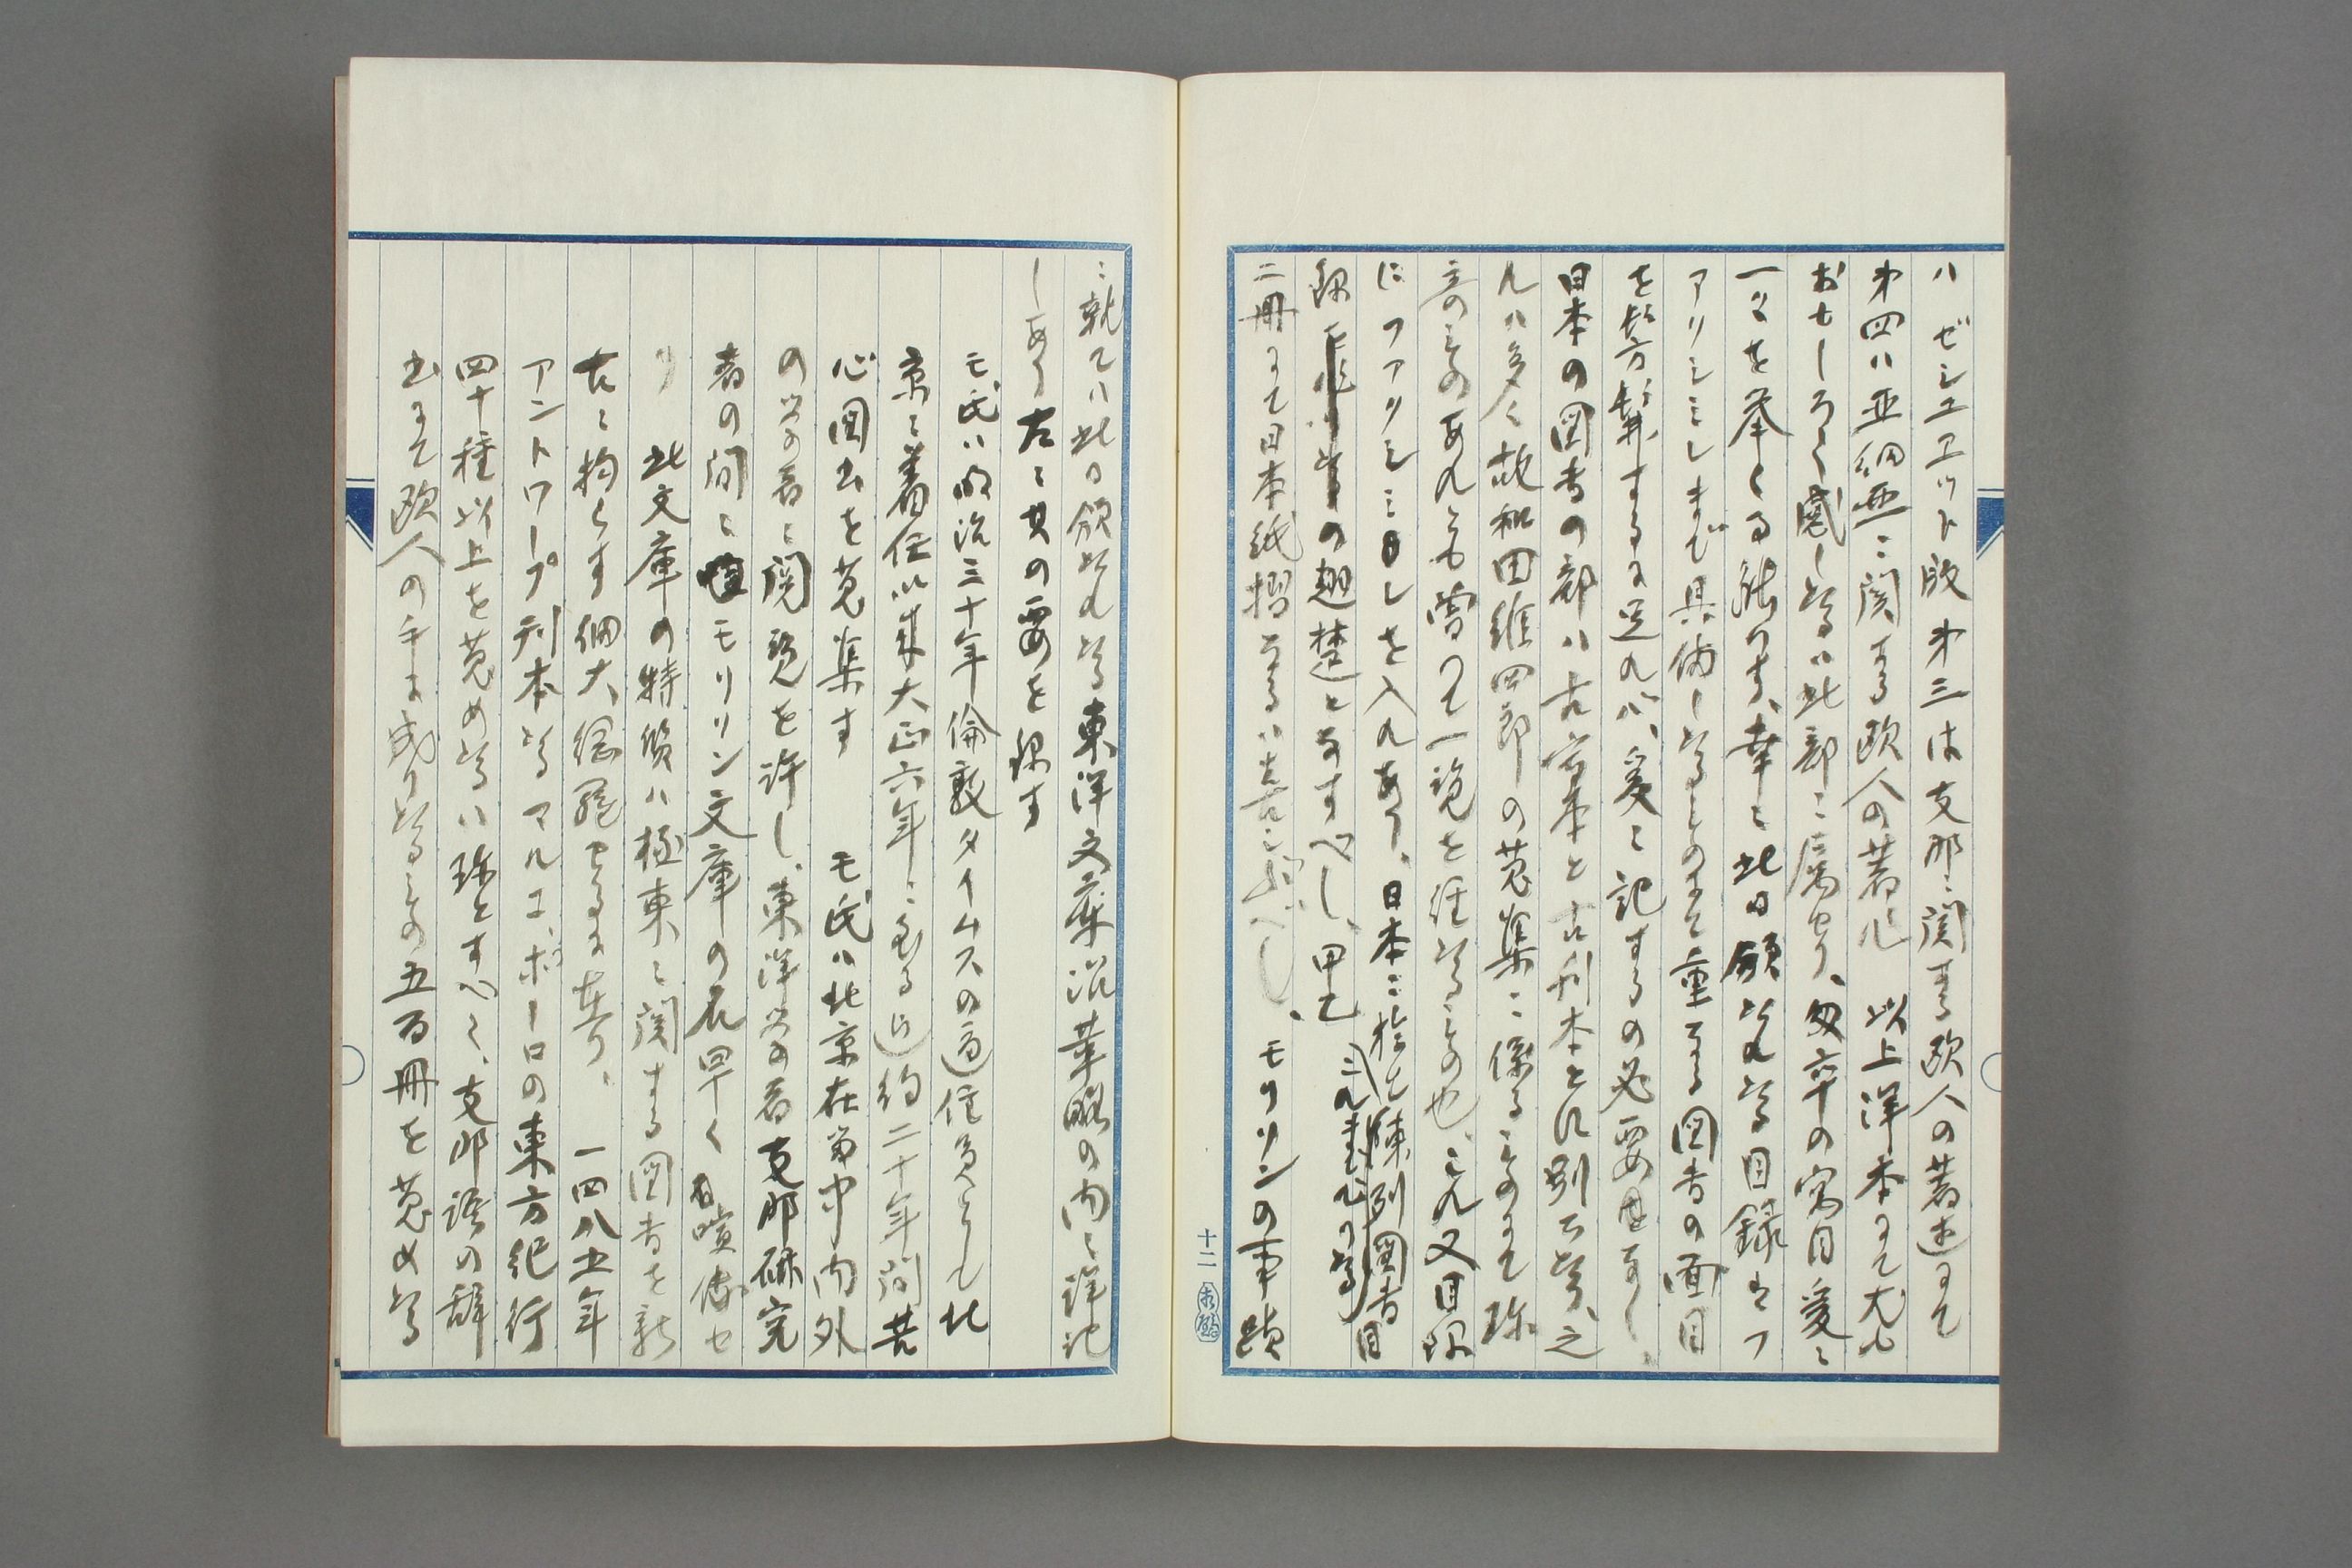 ハゼシユエツト版第三は支那ニ関する欧人の著述にて
第四ハ亜細亜ニ関する欧人の著也 以上洋本にて尤も
おもしろく感し候ハ此部ニ属せり、匆卒の寓目爰ニ
一々を挙くる能はす、幸ニ此日領たれ候目録はフ
アクシミレまで具備し候ものにて重なる図書の面目
を髣髴するに足れバ、爰ニ記するの必要なし、
日本の図書の部ハ古写本と古刊本とに別れ候、之
れハ多く故和田維四郎の蒐集ニ係るものにて珍
奇のものあれども嘗つて一覧を経候もの也、これ又目録
にフアクシミロレを入れあり、日本ニ於て陳列図書目
録の翹楚となすべし、甲乙
二冊にて日本紙摺なるハ喜ぶべし、モリソンの事蹟
十二
ニ就ては此日領たれ候東洋文庫沿革略の内ニ詳記
しあり左ニ其の要を録す
モ氏ハ明治三十年倫敦タイムスの通信員として北
京ニ着任以来大正六年ニ至る迄約二十年間苦
心図書を蒐集す モ氏ハ北京在留中内外
の学者ニ閲覧を許し、東洋学者支那研究
者の間ニモリソン文庫の名早く喧伝せ
り 此文庫の特質ハ極東ニ関する図書を新
古ニ拘らす細大網羅せるに在り、 一四八五年
アントワープ刊本なるマルコ、ポーロの東方紀行
四十種以上を蒐め候ハ珍とすべく、支那語の辞
書にて欧人の手に成り候もの五百冊を蒐め候